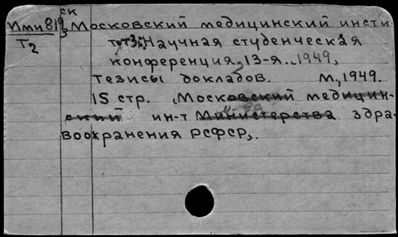 ск
Ими819, Московский медицинский инсти
Т2 тут. Научная студенческая
конференция, 13-я. 1949,
Тезисы докладов. М, 1949.
15 стр. Московский медицин-
ский ин-т Министерства здра-
воохранения РСФСР.